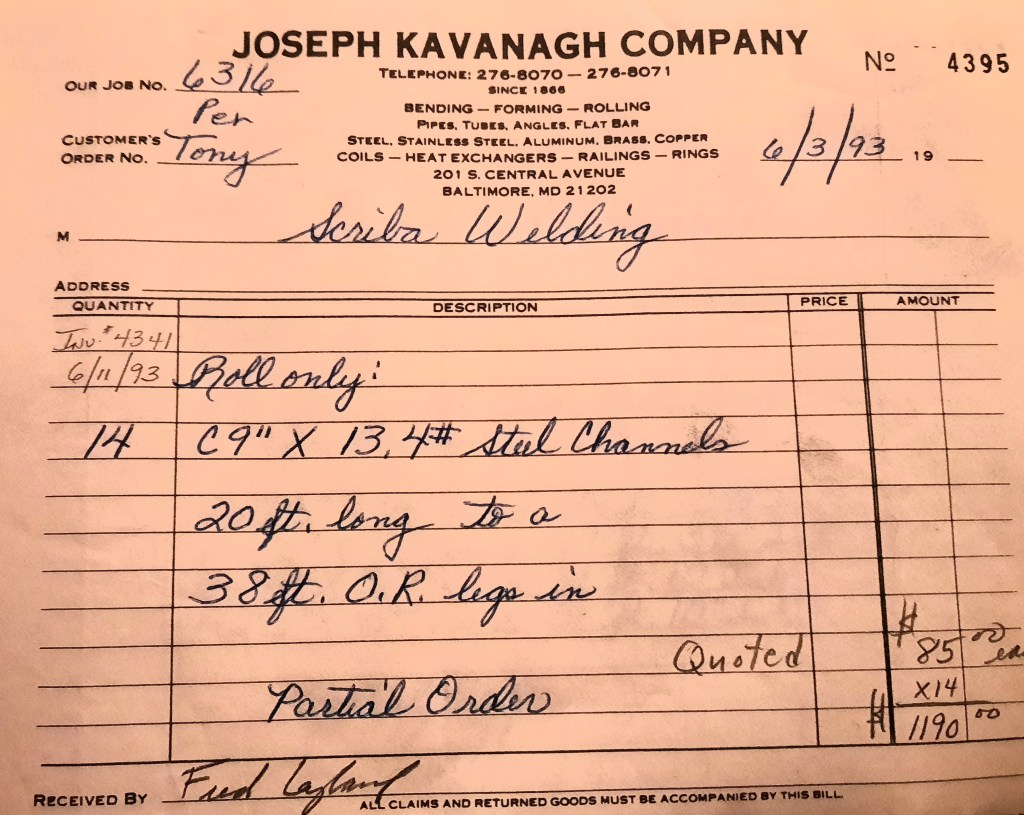 JOSEPH KAVANAGH COMPANY
Nº 4395
TELEPHONE: 276-8070 — 276-8071
SINCE 1866
OUR JOB NO. 6316
BENDING — FORMING — ROLLING
PIPES, TUBES, ANGLES, FLAT BAR
Per
CUSTOMER'S
ORDER NO. Tony
STEEL, STAINLESS STEEL, ALUMINUM, BRASS, COPPER
COILS — HEAT EXCHANGERS — RAILINGS — RINGS
6/3/93 19
201 S. CENTRAL AVENUE
BALTIMORE, MD 21202
M Scriba Welding
ADDRESS
QUANTITY DESCRIPTION PRICE AMOUNT
Inv. # 4341
6/11/93 Roll only:
14 C 9" X 13.4# Steel Channels
20 ft. long to a
38 ft. O.R. legs in
Quoted $ 85 00 ea
Partial Order X14
$ 1190 00
RECEIVED BY Fred
ALL CLAIMS AND RETURNED GOODS MUST BE ACCOMPANIED BY THIS BILL